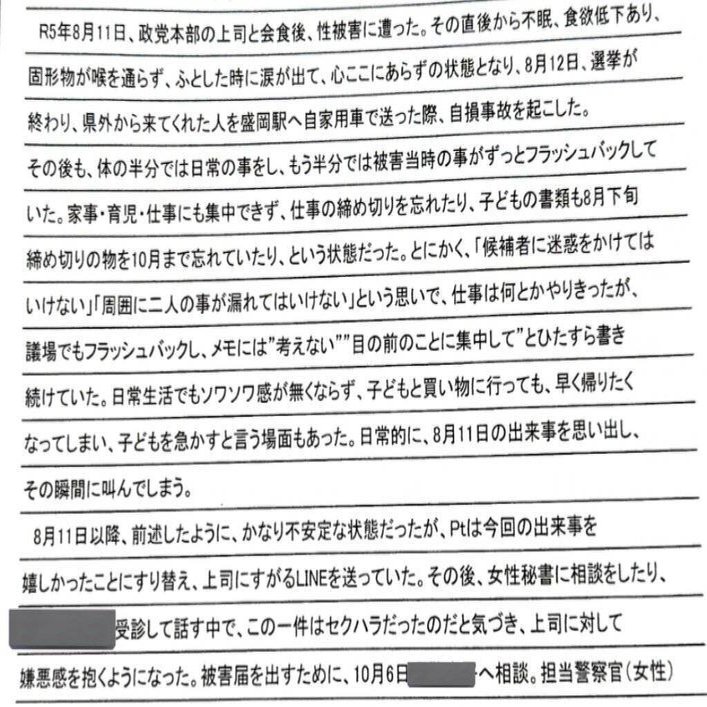 R5年8月11日、政党本部の上司と会食後、性被害に遭った。その直後から不眠、食欲低下あり、
固形物が喉を通らず、ふとした時に涙が出て、心ここにあらずの状態となり、8月12日、選挙が
終わり、県外から来てくれた人を盛岡駅へ自家用車で送った際、自損事故を起こした。
その後も、体の半分では日常の事をし、もう半分では被害当時の事がずっとフラッシュバックして
いた。家事・育児・仕事にも集中できず、仕事の締め切りを忘れたり、子どもの書類も8月下旬
締め切りの物を10月まで忘れていたり、という状態だった。とにかく、「候補者に迷惑をかけては
いけない」「周囲に二人の事が漏れてはいけない」という思いで、仕事は何とかやりきったが、
議場でもフラッシュバックし、メモには”考えない””目の前のことに集中して”とひたすら書き
続けていた。日常生活でもソワソワ感が無くならず、子どもと買い物に行っても、早く帰りたく
なってしまい、子どもを急かすと言う場面もあった。日常的に、8月11日の出来事を思い出し、
その瞬間に叫んでしまう。
8月11日以降、前述したように、かなり不安定な状態だったが、Ptは今回の出来事を
嬉しかったことにすり替え、上司にすがるLINEを送っていた。その後、女性秘書に相談をしたり、
受診して話す中で、この一件はセクハラだったのだと気づき、上司に対して
嫌悪感を抱くようになった。被害届を出すために、10月6日 へ相談。担当警察官(女性)